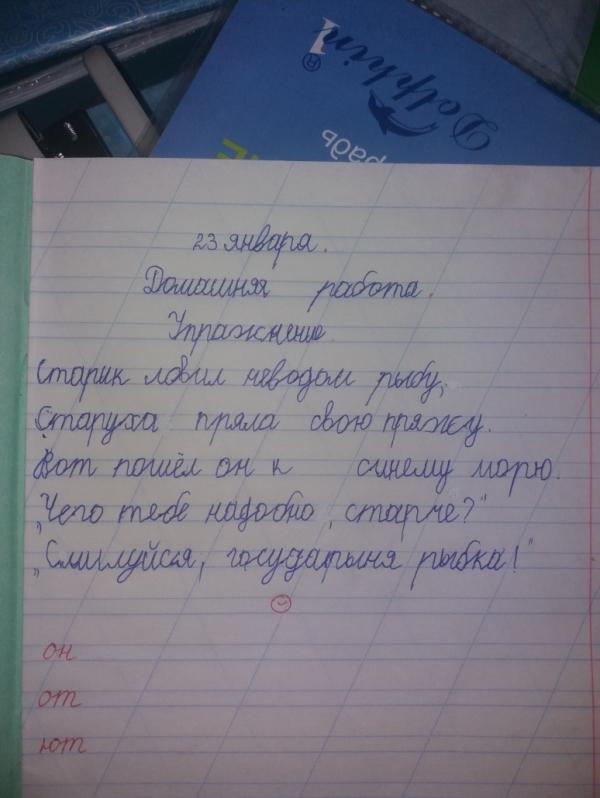 Dolphin
®
радь
23 января.
Домашняя работа.
Упражнение.
Старик ловил неводом рыбу,
Старуха пряла свою пряжу.
Вот пошёл он к синему морю.
„Чего тебе надобно, старче?"
„Смилуйся, государыня рыбка!"
он
от
ют